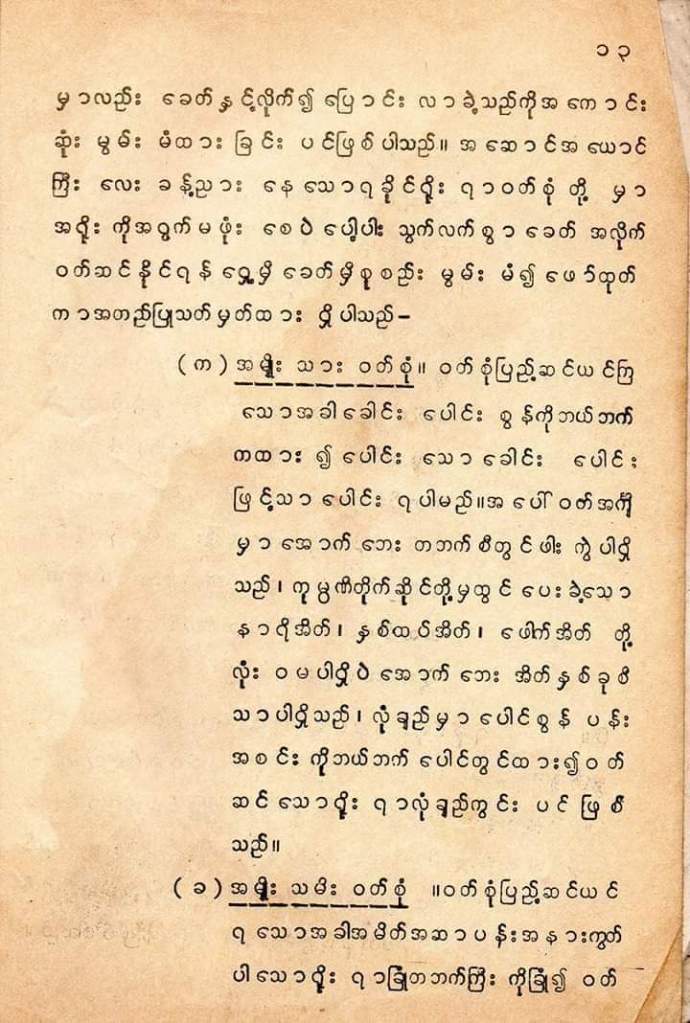 ၁၃
မှာလည်း ခေတ်နှင့်လိုက်၍ ပြောင်း လာခဲ့သည်ကိုအကောင်း
ဆုံး မွမ်း မံထား ခြင်း ပင်ဖြစ်ပါသည်။ အဆောင်အယောင်
ကြီး လေး ခန့်ညား နေသောရခိုင်ရိုး ရာဝတ်စုံ တို့ မှာ
အရိုး ကိုအရွက်မဖုံး စေပဲ ပေါ့ပါး သွက်လက်စွာခေတ် အလိုက်
ဝတ်ဆင်နိုင်ရန် ရှေ့မှီ ခေတ်မှီစုစည်း မွမ်း မံ၍ ဖော်ထုတ်
ကာအတည်ပြုသတ်မှတ်ထား ရှိပါသည်–
(က) အမျိုး သား ဝတ်စုံ။ ဝတ်စုံပြည့်ဆင်ယင်ကြ
သောအခါခေါင်း ပေါင်း စွန်ကိုဘယ်ဘက်
ကထား ၍ ပေါင်း သော ခေါင်း ပေါင်း
ဖြင့်သာပေါင်း ရပါမည်။အပေါ်ဝတ်အင်္ကျီ
မှာအောက်ဘေး တဘက်စီတွင်ဖါး ကွဲပါရှိ
သည်၊ ကုမ္ပဏီတိုက်ဆိုင်တို့မှထွင်ပေးခဲ့သော
နာရီအိတ်၊ နှစ်ထပ်အိတ်၊ ဖေါက်အိတ် တို့
လုံး ဝမပါရှိပဲအောက်ဘေး အိတ်နှစ်ခုစီ
သာပါရှိသည်၊ လုံချည်မှာပေါင်စွန် ပန်း
အစင်း ကိုဘယ်ဘက် ပေါင်တွင်ထား၍ဝတ်
ဆင်သောရိုး ရာလုံချည်ကွင်း ပင် ဖြစ်
သည်။
(ခ) အမျိုး သမီး ဝတ်စုံ ။ဝတ်စုံပြည့်ဆင်ယင်
ရသောအခါအမိတ်အဆာပန်းအနားကွတ်
ပါသောရိုး ရာခြုံတဘက်ကြီး ကိုခြုံ၍ ဝတ်